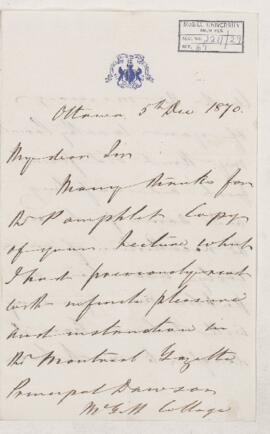 McGILL UNIVERSITY
ARCHIVES
ACC. NO. 1211/29
REF. 69
Ottawa 5th Dec 1870.
My dear Sir
Many thanks for
the Pamphlet Copy
of your Lecture which
I had previously read
with infinite pleasure
and instruction in
the Montreal Gazette
Principal Dawson
McGill College